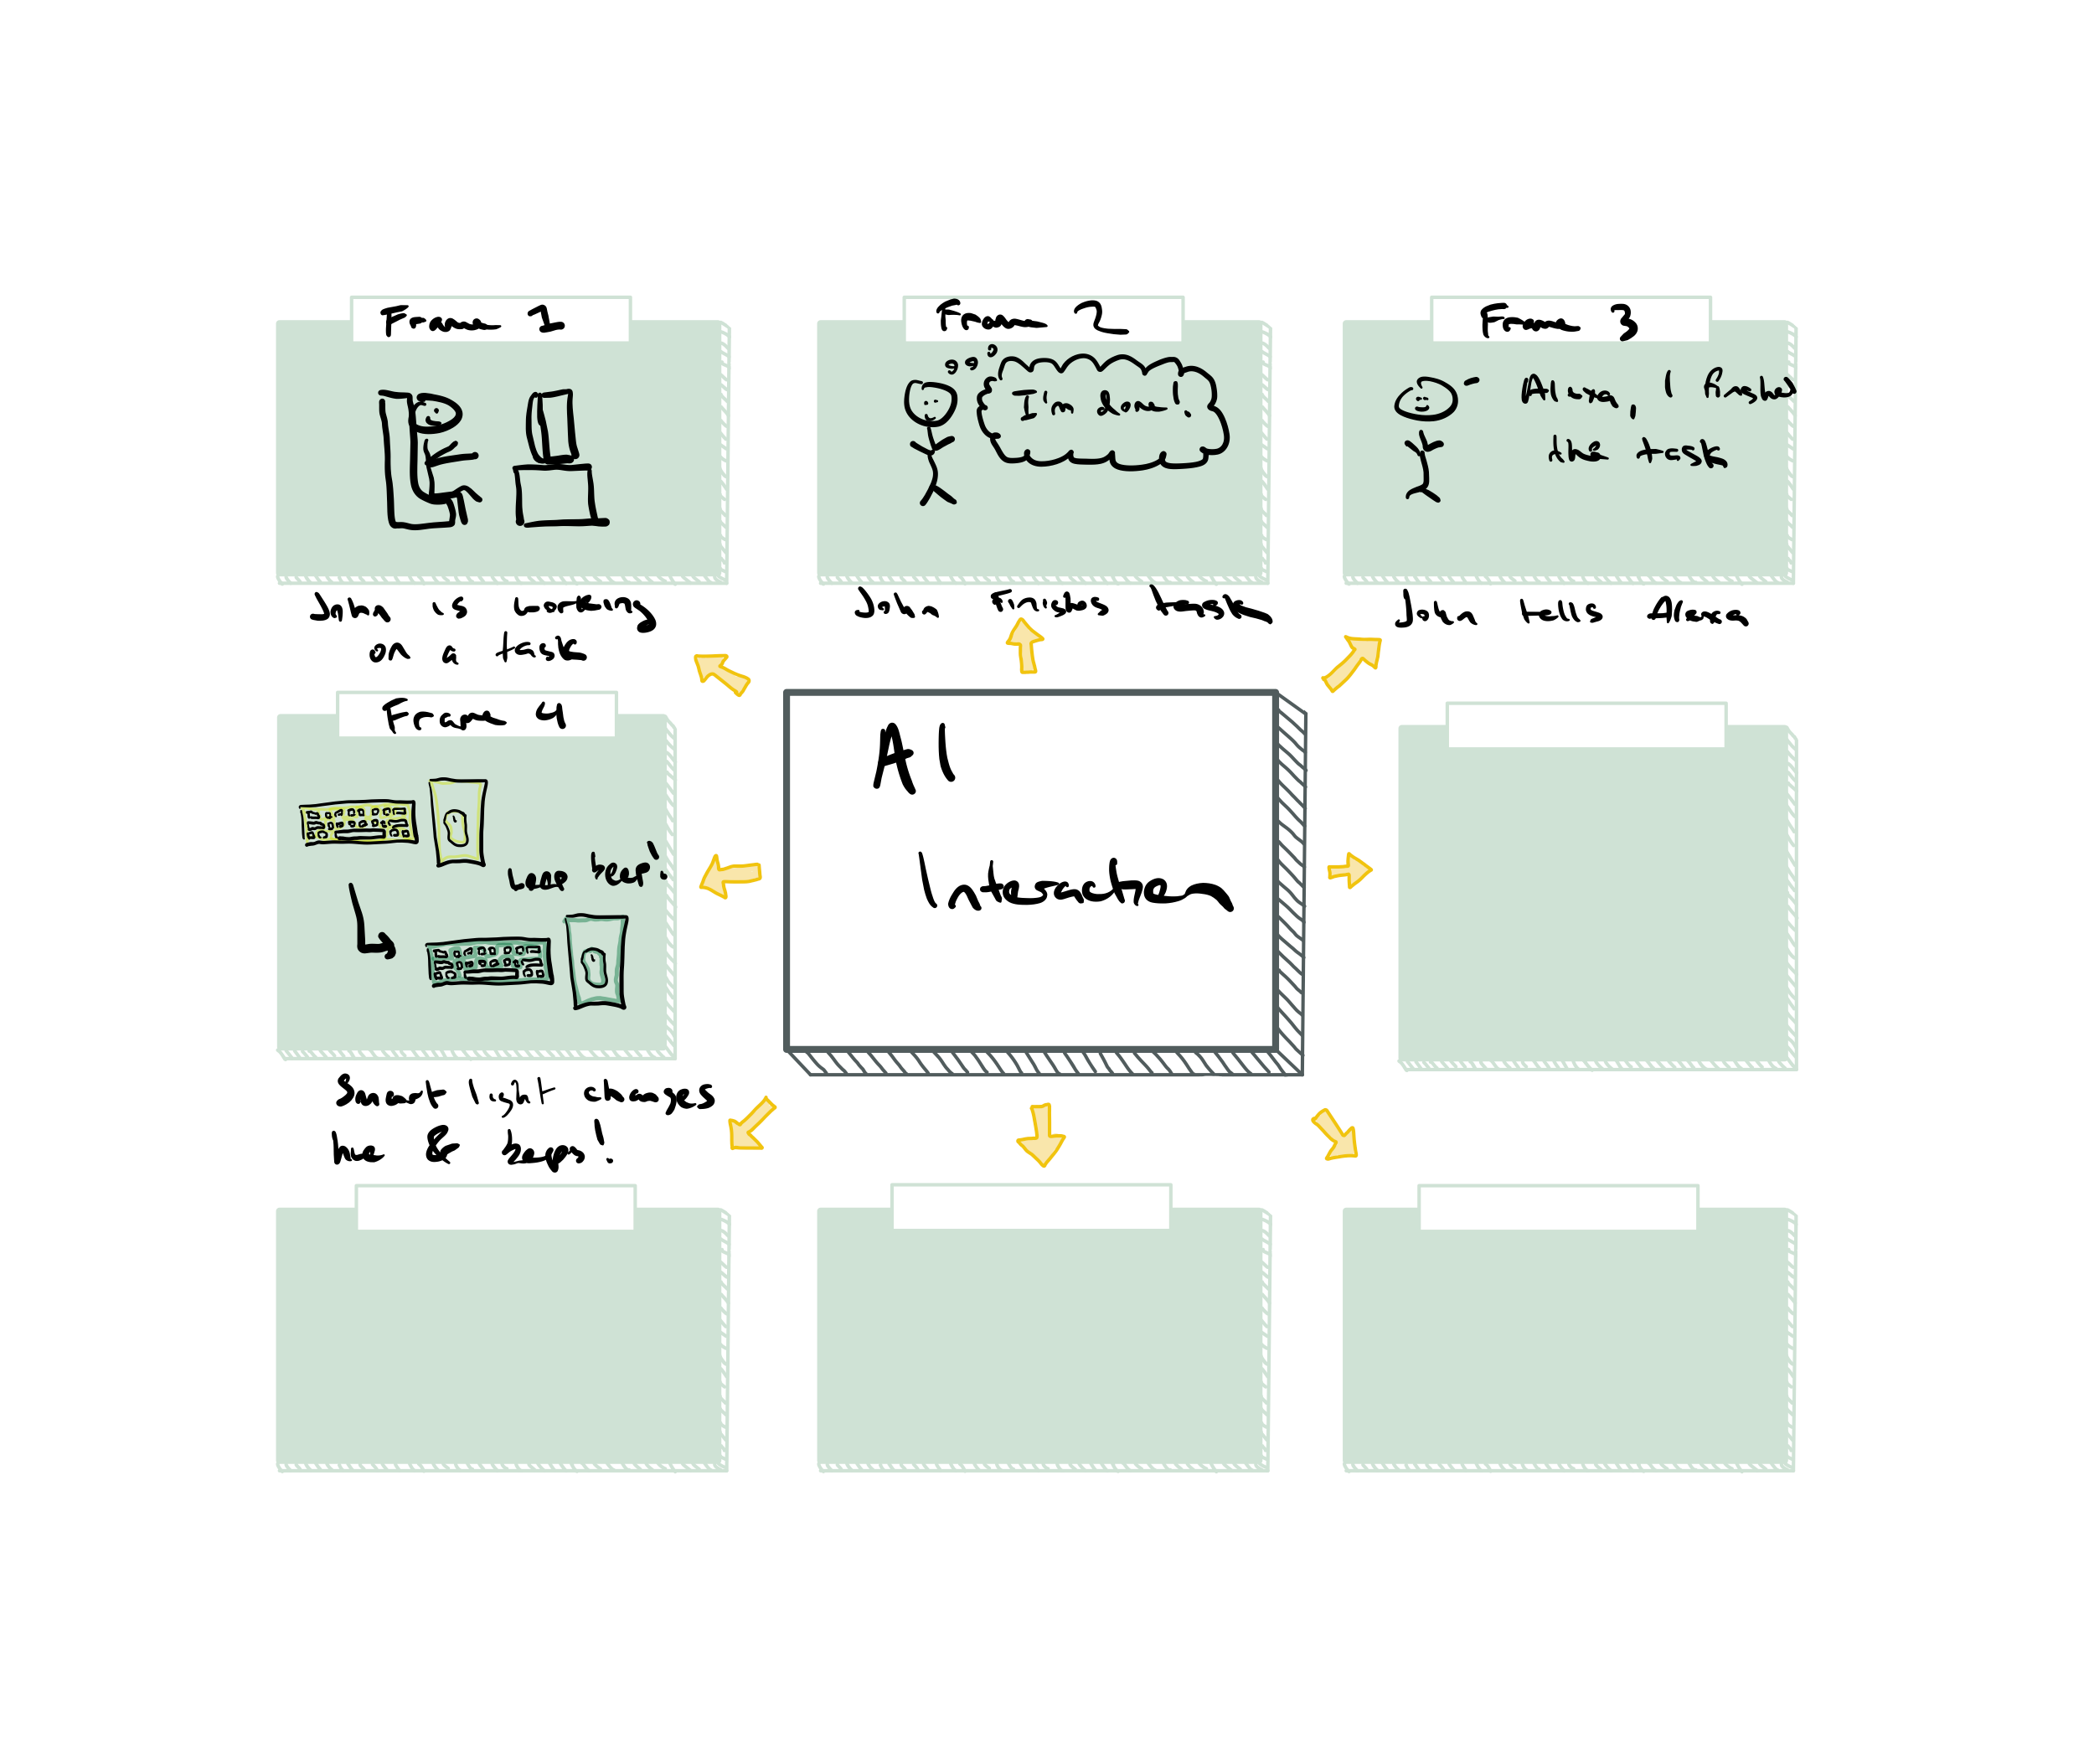 Frame 1
John is working
on a task
Frame 2
I'm done!
John finishes task
Frame 3
Alexa, I finished
the task
John tells Alexa
Frame 4
use beep!
Smart light changes
hue & beeps!
AI
Interaction